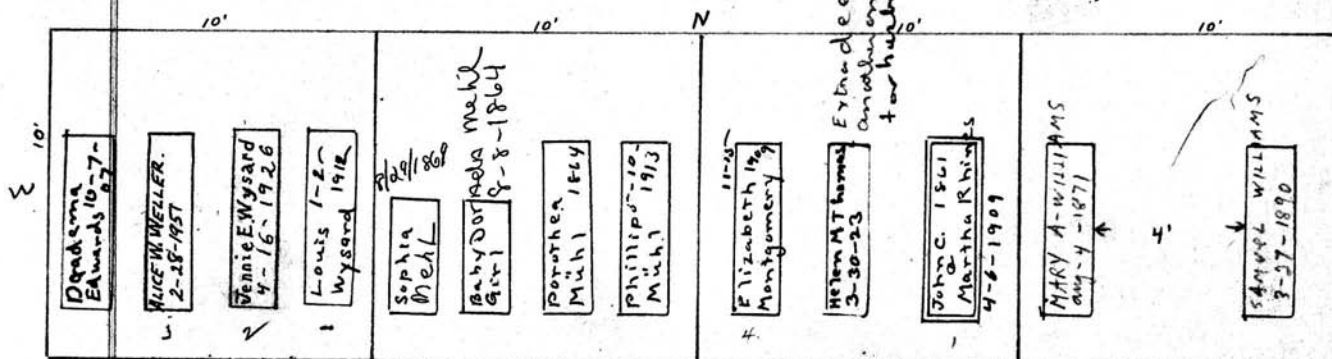 10'
10'
N
10'
10'
10'
Edwards 10-7-07
ALICE W. WELLER.
2-28-1957
3
Jennie E. Wysard
4-16-1926
2
Louis 1-2-
Wysard 1912
1
8/29/1860
Sophia
Mehl
Baby Dor
Girl
Ada Mehl
8-8-1864
Dorothea
Mühl 1864
Phillip 5-10-
Mühl 1913
11-13-
Elizabeth 1909
Montgomery
4.
Helen M Thomas
3-30-23
Extra dee
another on
for husb
John C. 1861
&
Martha Rhines
4-6-1909
1
MARY A. WILLIAMS
aug-4-1871
4'
SAMUEL WILLIAMS
9-27-1890